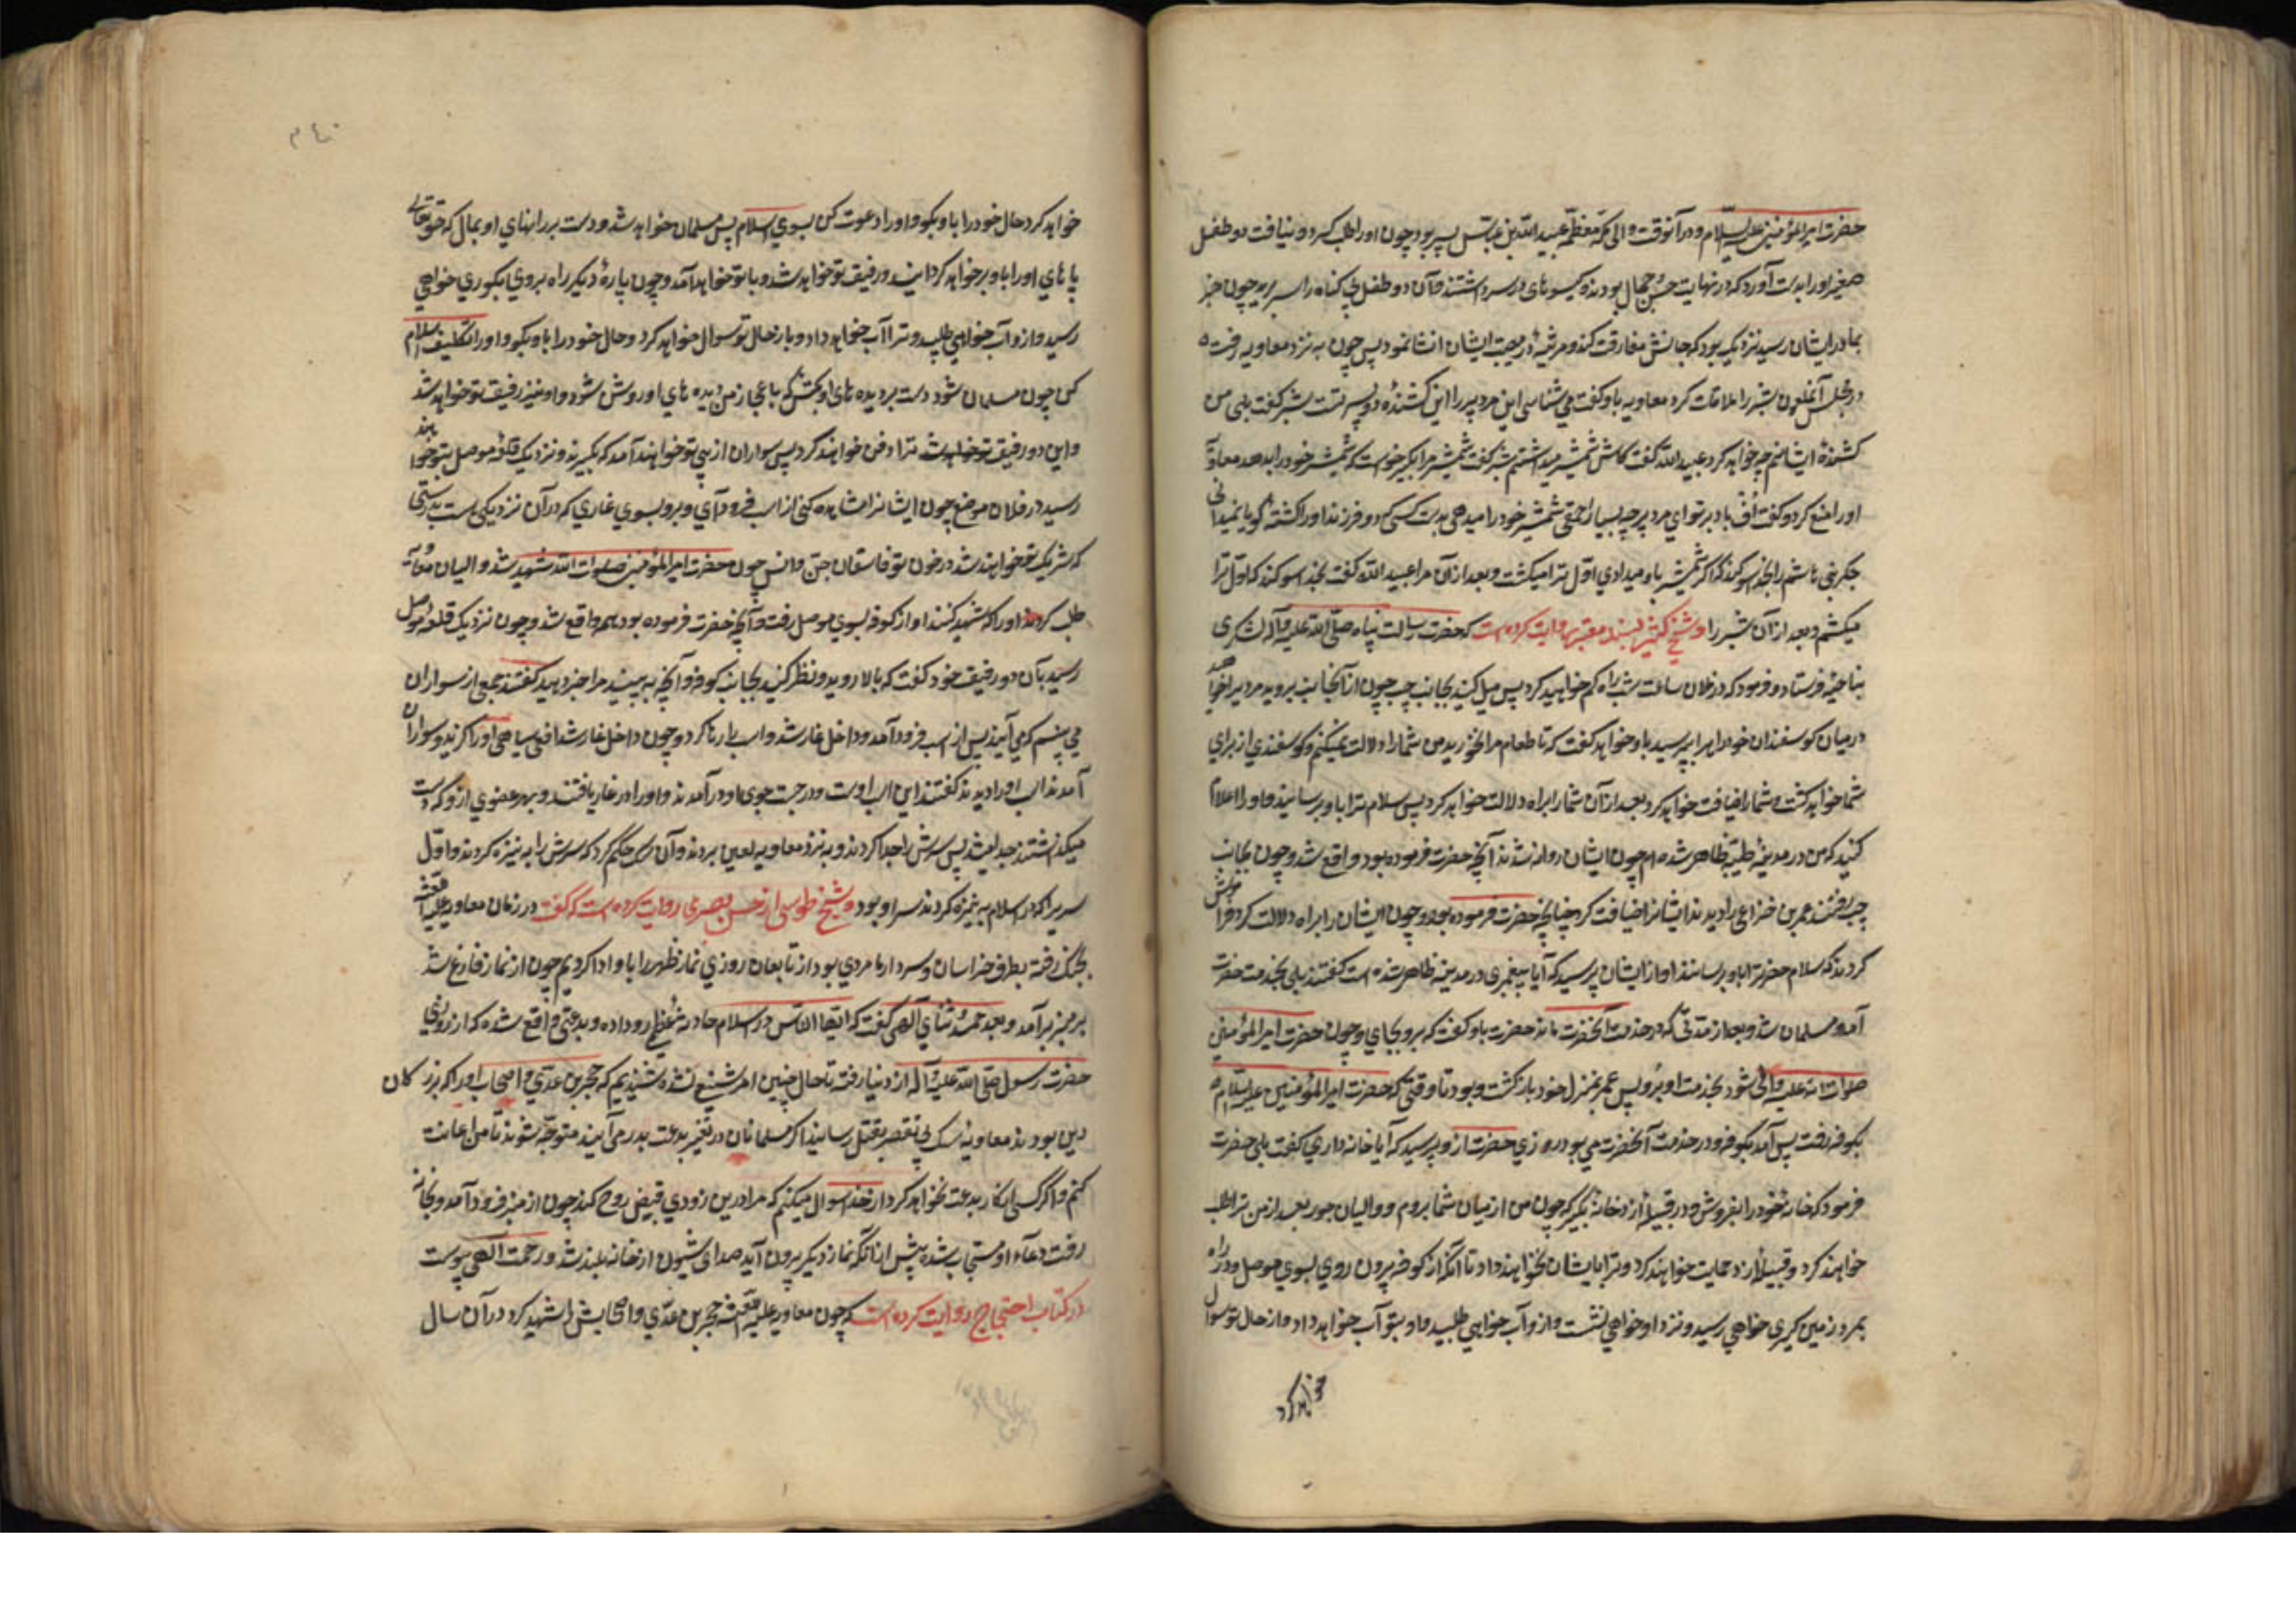 حضرت امیرالمؤمنین علیه السّلام و در آنوقت والی مکّه معظّمه عبید اللّه بن عبّاس بود چون او را طلب کرد و نیافت دو طفل
صغیر او را بدست آورد که در نهایت حسن و جمال بودند و کیسوهای در سر داشتند و آن دو طفل بی کناه را سر برید چون خبر
بمادر ایشان رسید نزدیک بود که جانش مفارقت کند و مرثیۀ در مصیبت ایشان انشا نمود پس چون به نزد معاویه رفت
در مجلس آنملعون بشر را ملاقات کرد معاویه باو کفت می شناسی این مرد پیر را این کشندۀ دو پسر تست بشر کفت بلی من
کشندۀ ایشانم چه خواهد کرد عبید اللّه کفت کاش شمشیر میداشتم بشر کفت شمشیر مرا بکیر خواست که شمشیر خود را بدهد معاویه
او را منع کرد و کفت اُفّ باد بر تو ای مرد پیر چه بسیار احمقی شمشیر خود را میدهی بدست کسی که دو فرزند او را کشتۀ کویا نمیدانی
جکر بنی هاشم را بخدا سوکند که اکر شمشیر باو میدادی اوّل ترا میکشت و بعد از آن مرا عبید اللّه کفت بخدا سوکند که اوّل ترا
میکشتم و بعد از آن بشر را و شیخ کشّی بسند معتبر روایت کرده است که حضرت رسالت پناه صلّی اللّه علیه و آله لشکری
بناحیۀ فرستاد و فرمود که در فلان ساعت شب راه کم خواهید کرد پس میل کنید بجانب چپ چون از آنجانب بروید مردیرا خواهید
در میان کوسفندان خود از او راه بپرسید باو خواهد کفت که تا طعام مرا نخورید من شما را دلالت نمیکنم و کوسفندی از برای
شما خواهد کشت و شما را ضیافت خواهد کرد بعد از آن شما را براه دلالت خواهد کرد پس سلام مرا باو برسانید و او را اعلام
کنید که من در مدینۀ طیّبه ظاهر شده ام چون ایشان روانه شدند آنچه حضرت فرموده بود واقع شد و چون بجانب
چپ رفتند عمر بن خزاعی را دیدند ایشانرا ضیافت کرد چنانچه حضرت فرموده بود و چون ایشان را براه دلالت کرد فراموش
کردند که سلام حضرترا باو برسانند او از ایشان پرسید که آیا پیغمبری در مدینه ظاهر شده است کفتند بلی بخدمت حضرت
آمد و مسلمان شد و بعد از مدّتی که در خدمت آنحضرت ماند حضرت باو کفت که برو بجای و چون حضرت امیرالمؤمنین
صلوات اللّه علیه والی شود بخدمت او برو پس عمر بمنزل خود باز کشت و بود تا وقتی که حضرت امیرالمؤمنین علیه السّلام
بکوفه رفت پس آمد بکوفه و در خدمت آنحضرت می بود روزی حضرت از و پرسید که آیا خانه داری کفت بلی حضرت
فرمود که خانۀ خود را بفروش و در قبیلۀ ازد خانۀ بکیر که چون من از میان شما بروم و والیان جور بعد از من ترا طلب
خواهند کرد و قبیلۀ ازد حمایت خواهند کرد و ترا بایشان نخواهند داد تا آنکه از کوفه بیرون روی بسوی موصل و در راه
بمرد زمین کیری خواهی رسید و نزد او خواهی نشست و از و آب خواهی طلبید و او بتو آب خواهد داد و از حال تو سوال
خواهد کرد
خواهد کرد حال خود را باو بکو و او را دعوت کن بسوی اسلام پس مسلمان خواهد شد و دست بر رانهای او بمال که حقتعالی
پاهای او را باو بر خواهد کردانید و رفیق تو خواهد شد و با تو خواهد آمد و چون پارۀ دیکر راه بروی بکوری خواهی
رسید و از و آب خواهی طلبید و ترا آب خواهد داد و باز از حال تو سوال خواهد کرد و حال خود را باو بکو و او را تکلیف اسلام
کن چون مسلمان شود دست بر دیده های او بکش که باعجاز من دیده های او روشن شود و او نیز رفیق تو خواهد شد
و این دو رفیق تو ترا دفن خواهند کرد پس سواران از پی تو خواهند آمد که بکیرند و نزدیک قلعۀ موصل بتو خواهند
رسید در فلان موضع چون ایشانرا مشاهده کنی از اسب فرود آی و برو بسوی غاری که در آن نزدیکی است بدرستی
که شریک خواهند شد در خون تو فاسقان جنّ و انس چون حضرت امیرالمؤمنین صلوات اللّه شهید شد والیان معاویه
طلب کردند او را که شهید کنند او از کوفه بسوی موصل رفت و آنچه حضرت فرموده بود همه واقع شد و چون نزدیک قلعۀ موصل
رسید بآن دو رفیق خود کفت که بالا روید و نظر کنید بجانب کوفه و آنچه به بینید مرا خبر دهید کفتند جمعی از سواران
می بینیم که می آیند پس از اسب فرود آمد و داخل غار شد و اسب را رها کرد و چون داخل غار شد افعی سیاهی او را کزید و سواران
آمدند اسب او را دیدند کفتند این اسب اوست و در جست جوی او در آمدند و او را در غار یافتند و بهر عضوی از و که دست
میکذاشتند جدا میشد پس سرش را جدا کردند و به نزد معاویه لعین بردند و آن حکم کرد که سرش را به نیزه کردند و اوّل
سریرا که در اسلام به نیزه کردند سر او بود و شیخ طوسی از حسن بصری روایت کرده است که کفت در زمان معاویه علیه اللّعنه
بجنک رفته بطرف خراسان و سردار ما مردی بود از تابعان روزی نماز ظهر را با او ادا کردیم چون از نماز فارغ شد
بر منبر برآمد و بعد حمد و ثنای الهی کفت که ایّها النّاس در اسلام حادثۀ عظیم رو داده و بدعتی واقع شده که از روزی
حضرت رسول صلّی اللّه علیه و آله از دنیا رفته تا حال چنین امر شنیع نشده شنیدیم که حجر بن عدّی و اصحاب او را که بزرکان
دین بودند معاویه بی تقصیر بقتل رسانید اکر مسلمانان در تغیر بدعت بدر می آیند متوجّه شوند تا من اعانت
کنم و اکر کسی انکار بدعت نخواهد کرد از خدا سوال میکنم که مرا درین زودی قبض روح کند چون از منبر فرود آمد و بخانه
رفت دعاء او مستجاب شده پیش از آنکه نماز دیکر بیرون آید صدای شیون از خانه بلند شد و رحمت الهی پیوست
در کتاب احتجاج روایت کرده است که چون معاویه علیه اللّعنه حجر بن عدّی و اصحابش را شهید کرد در آن سال